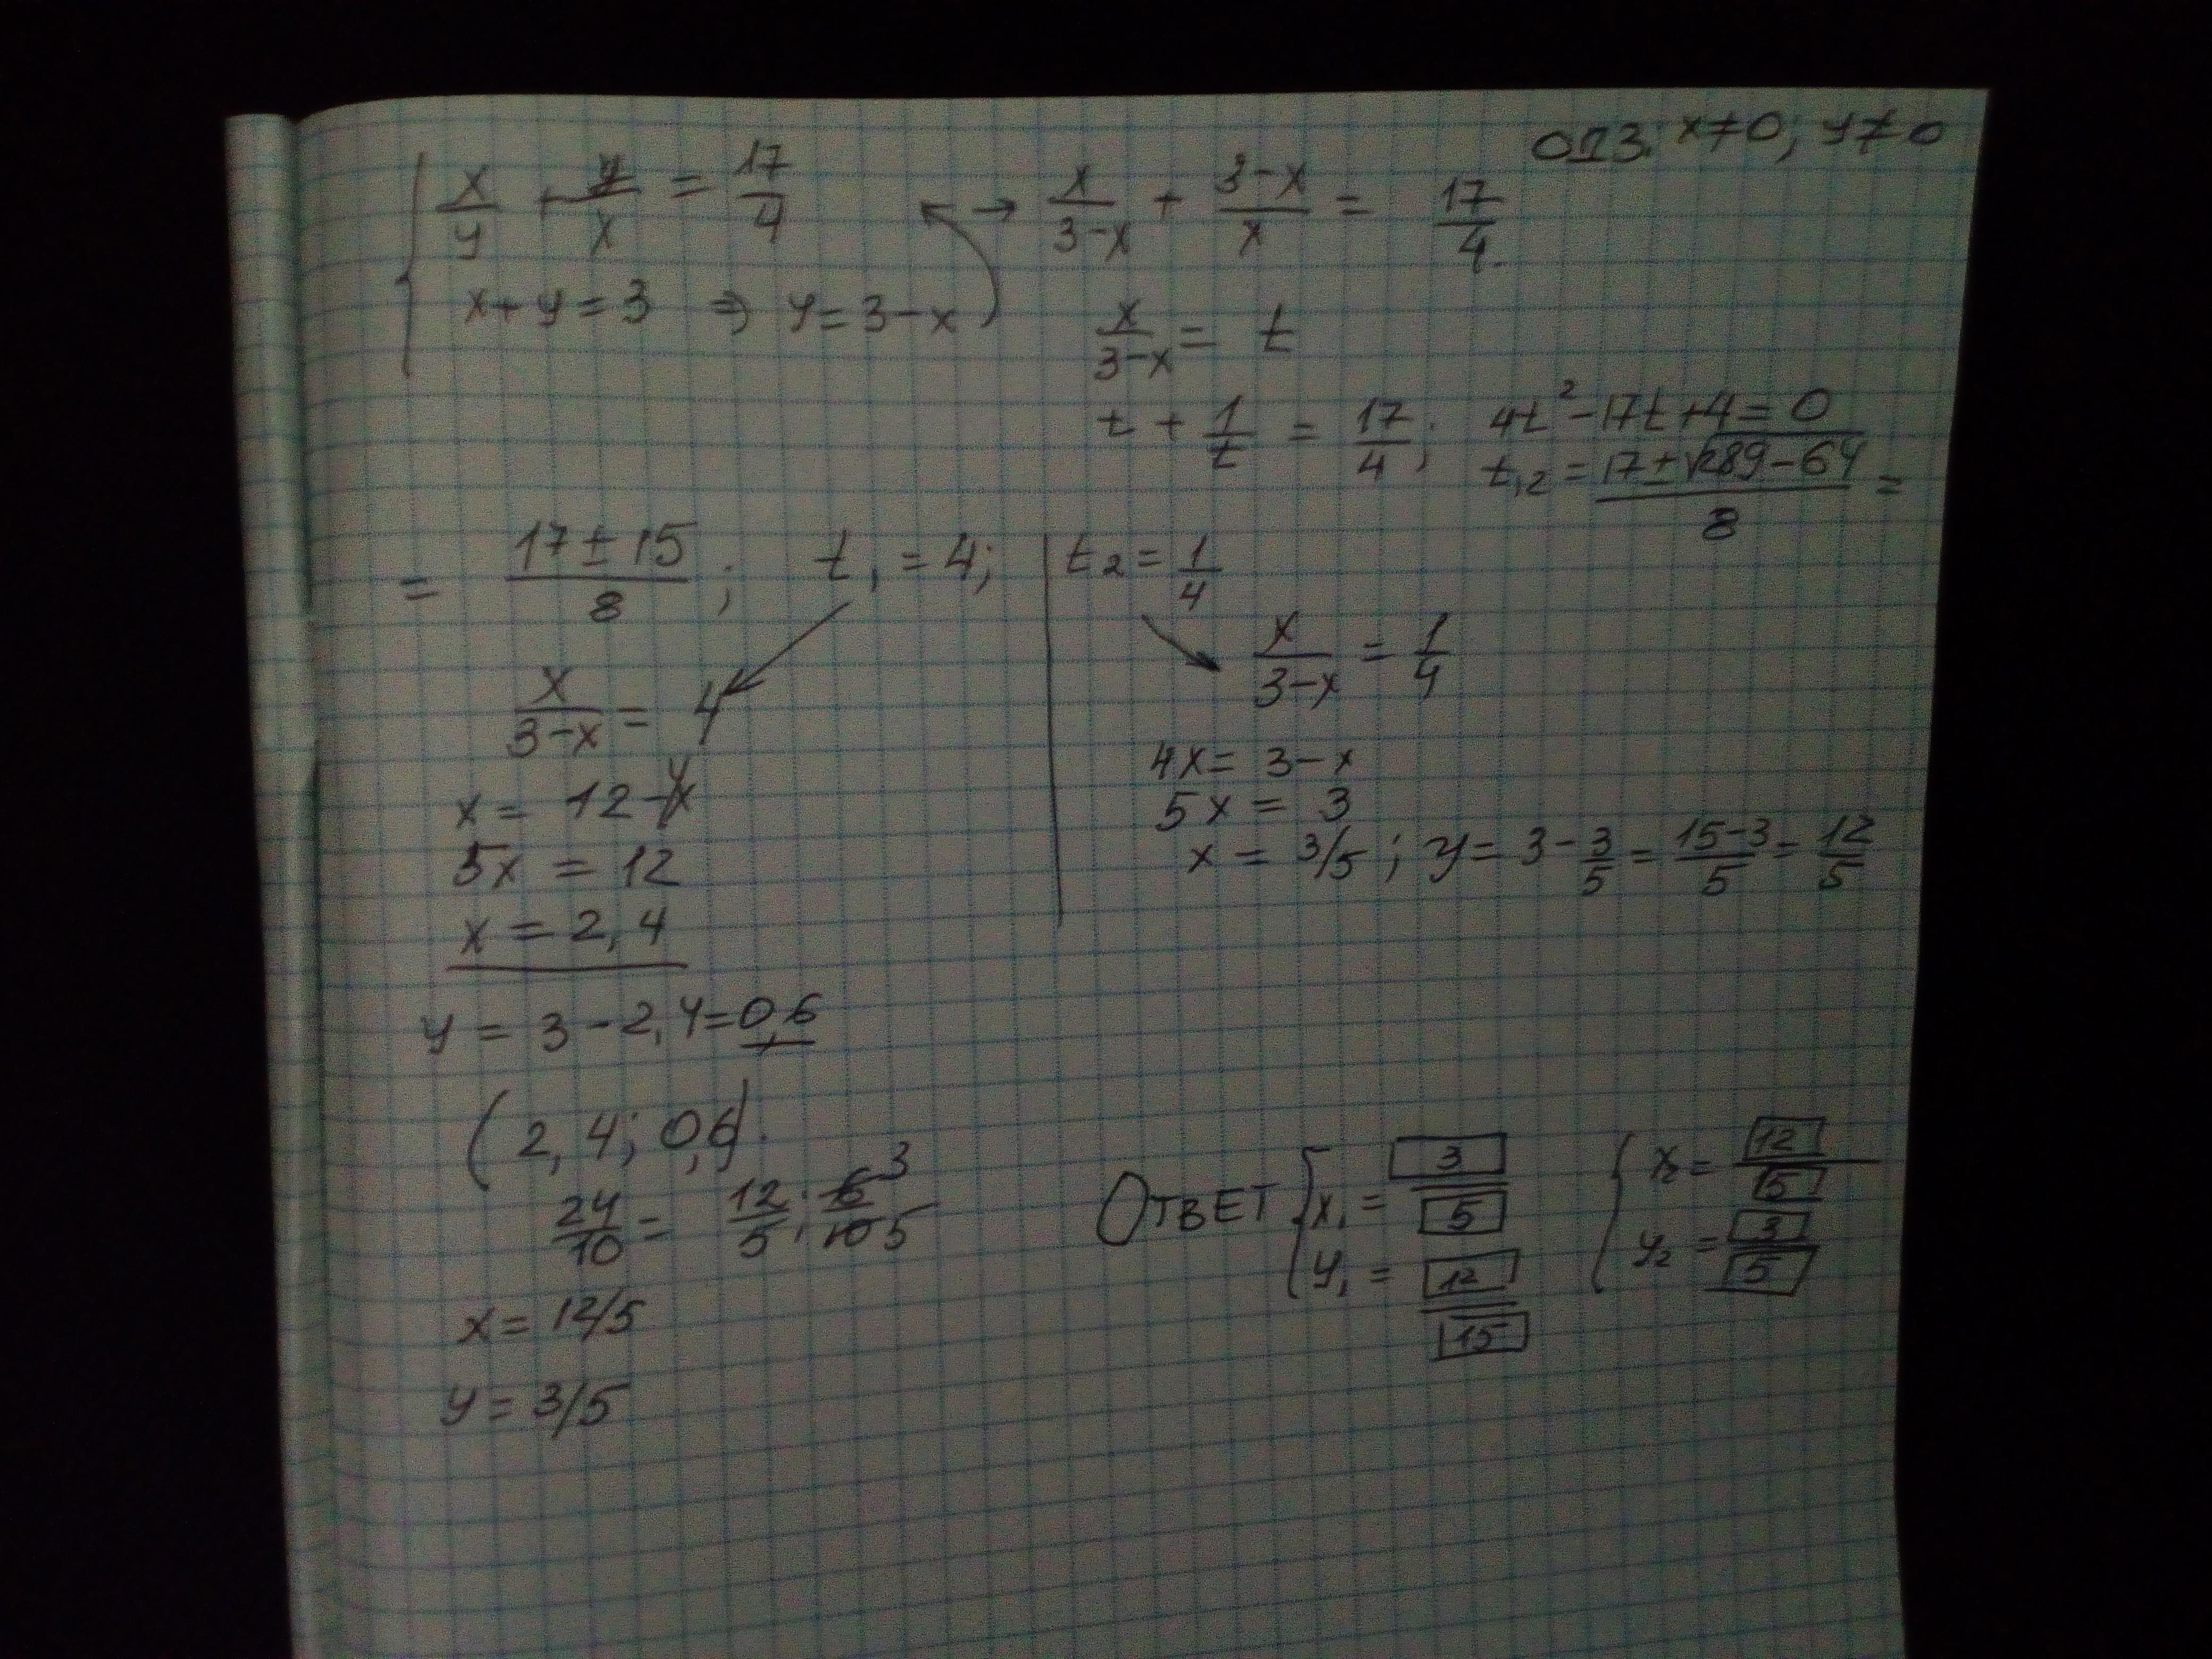 ОДЗ: x≠0; y≠0
x/y + y/x = 17/4 → x/(3-x) + (3-x)/x = 17/4
x+y=3 ⇒ y=3-x
x/(3-x) = t
t + 1/t = 17/4; 4t²-17t+4=0
t₁,₂ = (17±√289-64)/8 =
= (17±15)/8; t₁=4; t₂=1/4
x/(3-x) = 4
x = 12-4x
5x = 12
x = 2,4
y = 3-2,4=0,6
(2,4; 0,6).
24/10 = 12/5; 6/10 3/5
x = 12/5
y = 3/5
x/(3-x) = 1/4
4x = 3-x
5x = 3
x = 3/5; y = 3-3/5 = (15-3)/5 = 12/5
Ответ { x₁ = 3/5 { x₂ = 12/5
y₁ = 12/15 y₂ = 3/5